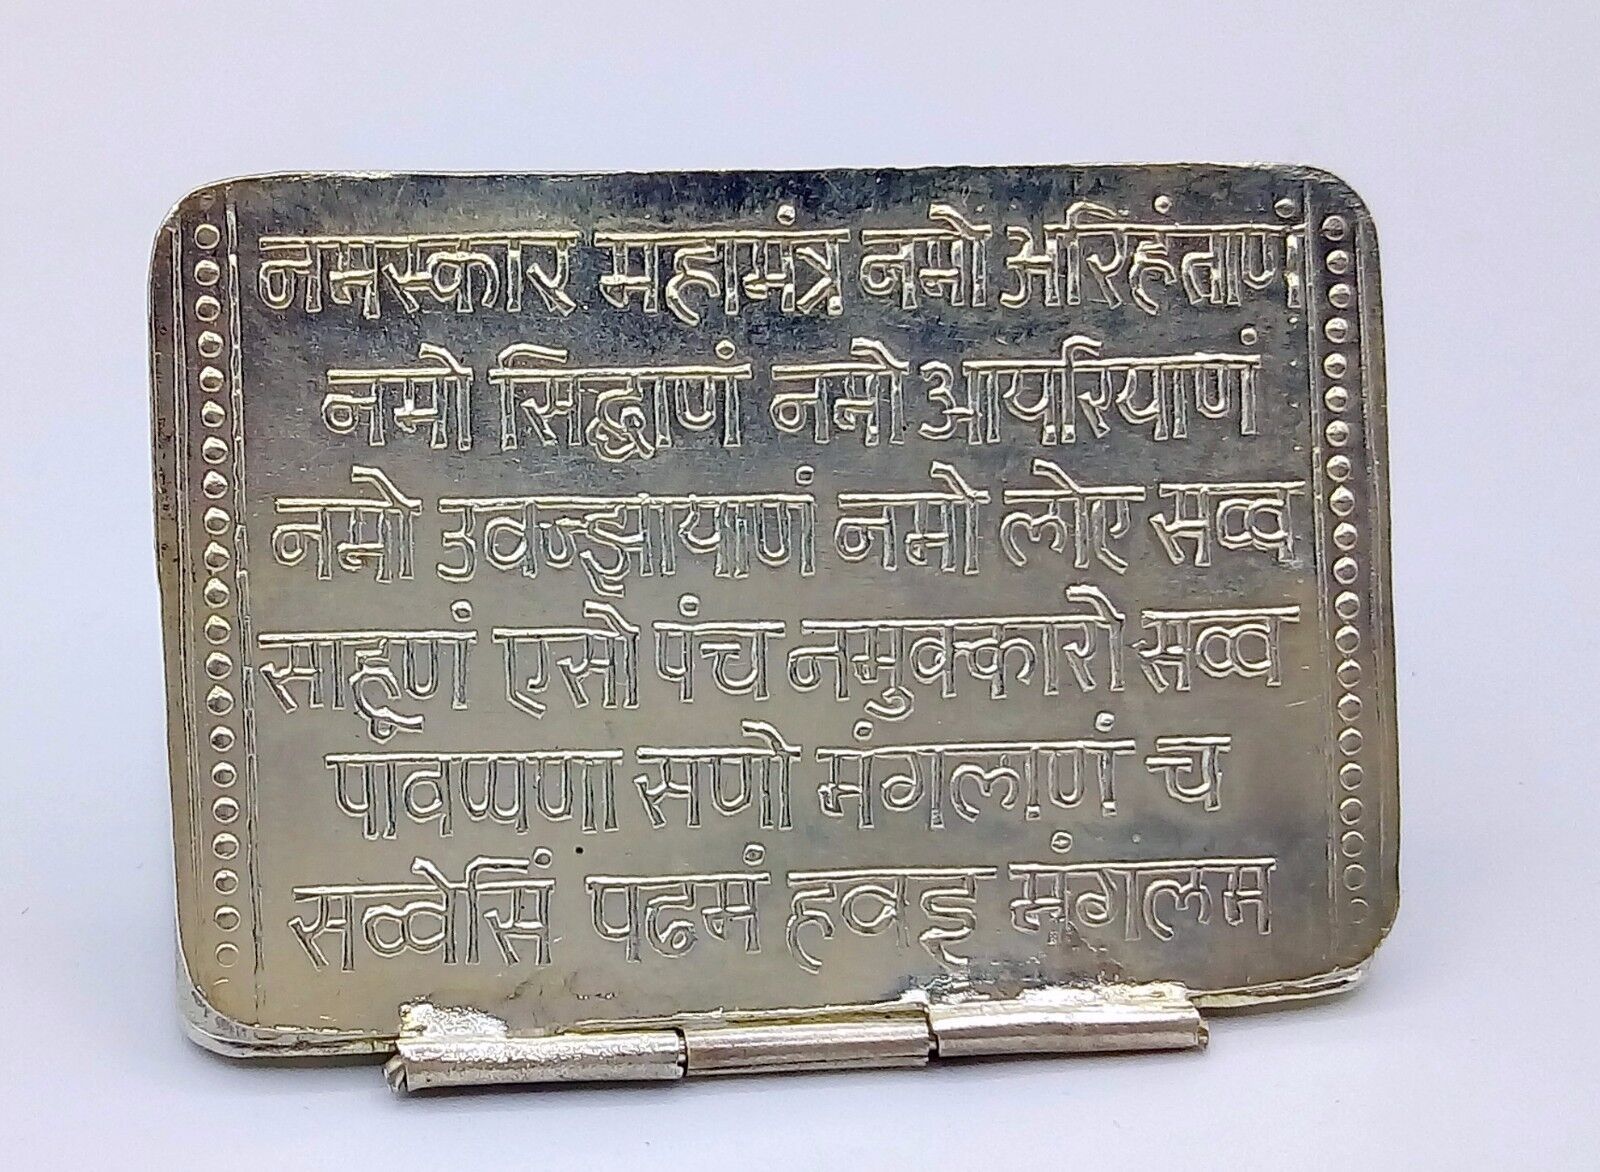 नमस्कार महामंत्र नमो अरिहंताणं
नमो सिद्धाणं नमो आयरियाणं
नमो उवज्झायाणं नमो लोए सव्व
साहूणं एसो पंच नमुक्कारो सव्व
पावप्पणा सणो मंगलाणं च
सव्वेसिं पढमं हवइ मंगलम